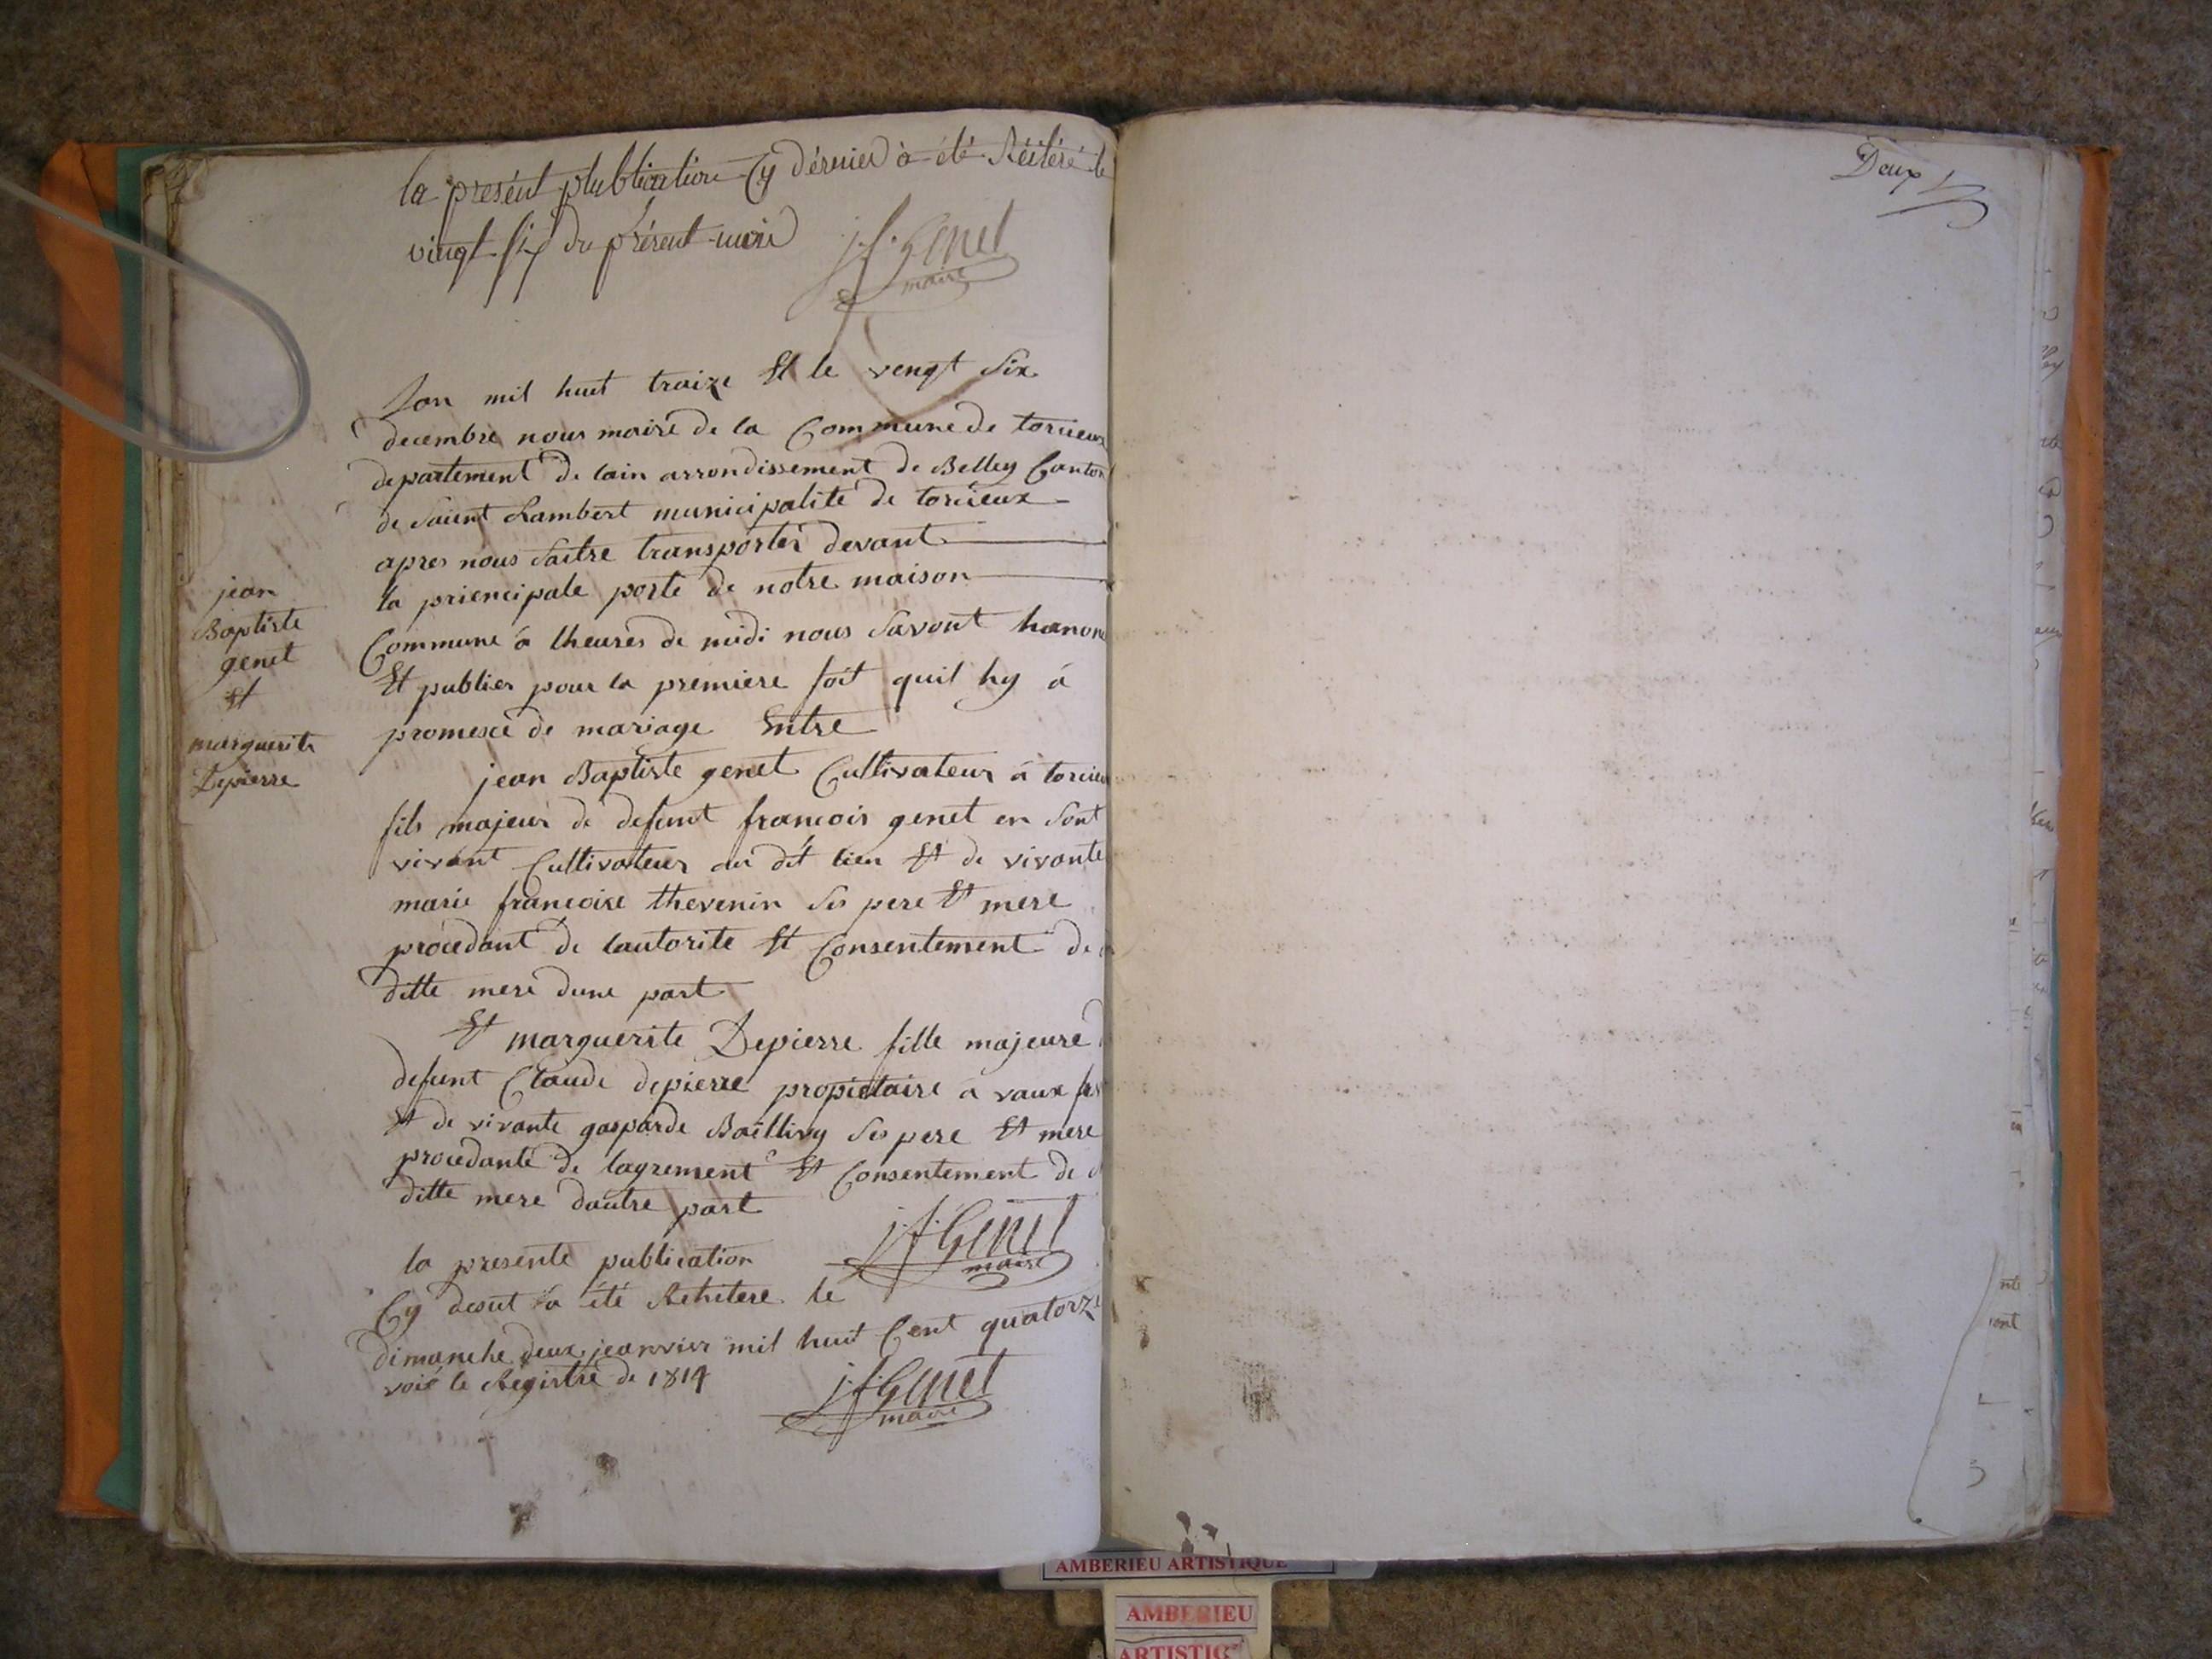 la présent plublication Cy dérnier à été Réitéré le
vingt six du présent mois
j.f. Genet
maire
Lan mil huit traize Et le vengt Six
decembre nous maire de la Commune de torcieux
departement de lain arrondissement de Belley Canton
de Saient Rambert municipalité de torcieux
apres nous Saitre transporter devant
la priencipale porte de notre maison
Commune à lheures de midi nous Savont hanonc
Et publier pour la premiere foit quil hy à
promesce de mariage Entre
jean
Baptiste
genet
Et
marguerite
Depierre
jean Baptiste genet Cultivateur à torcieu
fils majeur de defunt francois genet en Sont
vivant Cultivateur au dit lieu Et de vivante
marie francoise thevenin Ses pere Et mere
procedant de lautorite Et Consentement de
ditte mere dune part
Et marguerite Depierre fille majeure
defunt Claude depierre propietaire a vaux
Et de vivante gasparde Baillivy Ses pere Et mere
procedante de lagrement Et Consentement de
ditte mere dautre part
j.f. Genet
maire
la presente publication
Cy desut à été Rehitere le
dimanche deux jeanvier mil huit Cent quatorze
voié le Registre de 1814
j.f. Genet
maire
Deux
AMBERIEU ARTISTIQUE
AMBERIEU
ARTISTIQ